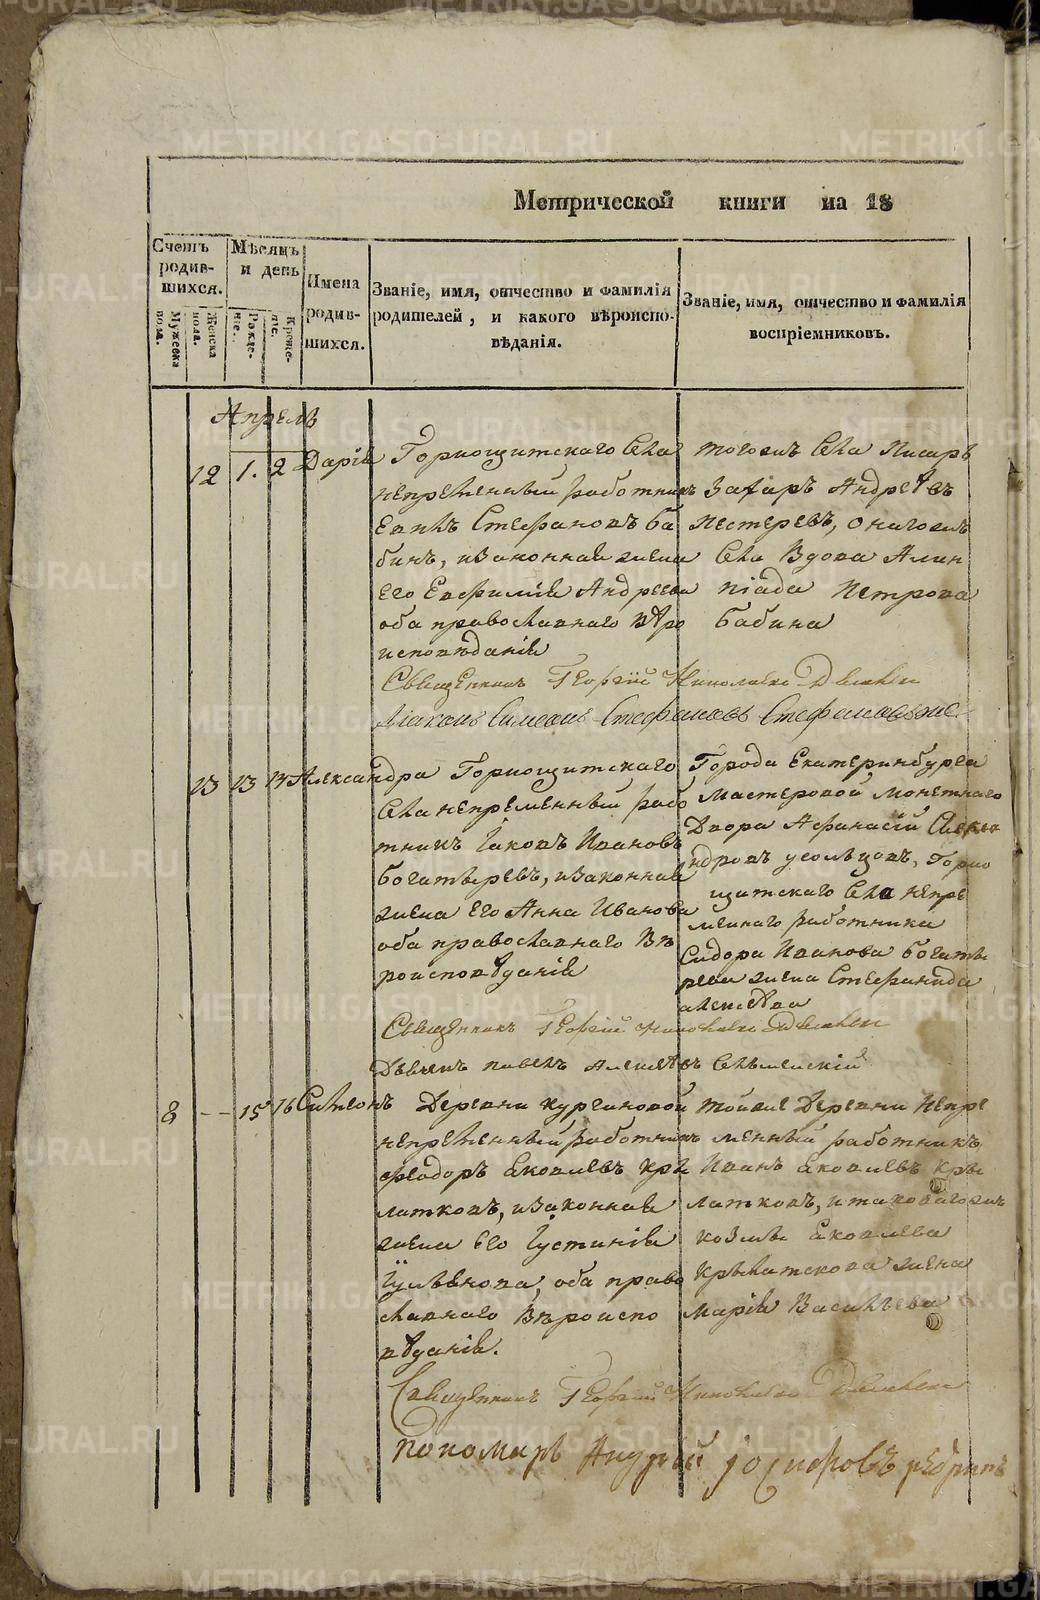 Метрической книги на 18
Счетъ родив-шихся.
Мужеска пола.
Женска пола.
Мѣсяцъ и день
Рожде-ніе.
Креще-ніе.
Имена родив-шихся.
Званіе, имя, отчество и фамилія родителей, и какого вѣроиспо-вѣданія.
Званіе, имя, отчество и фамилія воспріемниковъ.
Апрель
12 1. 2 Дарія
Горнощитскаго Села
непременный работникъ
Стефановъ Ба
бинъ, изаконная жена
Его Евфимія Андреева
оба православнаго вѣро
исповѣданія
тогожъ Села Писарь
Захаръ Андреевъ
Пестеревъ, онагожъ
Села Вдова Алим
піада Петрова
бабина
Священникъ Георгій Николаевъ
Діаконъ Симеонъ Стефановъ
13 13 14 Александра
Горнощитскаго
Села непременный рабо
тникъ Іаковъ Ивановъ
богатыревъ, изаконная
жена Его Анна Иванова
оба православнаго Вѣ
роисповѣданія
Города Екатеринбурга
Мастеровой Монетнаго
Двора Афанасій Алекса
ндровъ усольцовъ, Горно
щитскаго Села непре
меннаго работника
Сидора Иванова богаты
рева жена Стефанида
алексѣева
Священникъ Георгій Николаевъ
Дьячекъ павелъ алексѣевъ
8 -- 15 16 Симеонъ
Деревни кургановой
непременный работникъ
феодоръ Яковлевъ кры
латковъ, изаконная
жена Его Іустинія
оба право
славнаго Вѣроиспо
вѣданія.
тойже Деревни Непре
менный работникъ
Иванъ Яковлевъ кры
латковъ, и таковагожъ
козмы Яковлева
Крылаткова жена
Марія Васильева
Священникъ Георгій Николаевъ
Пономарь Андрей Іосифовъ
METRIKI.GASO-URAL.RU